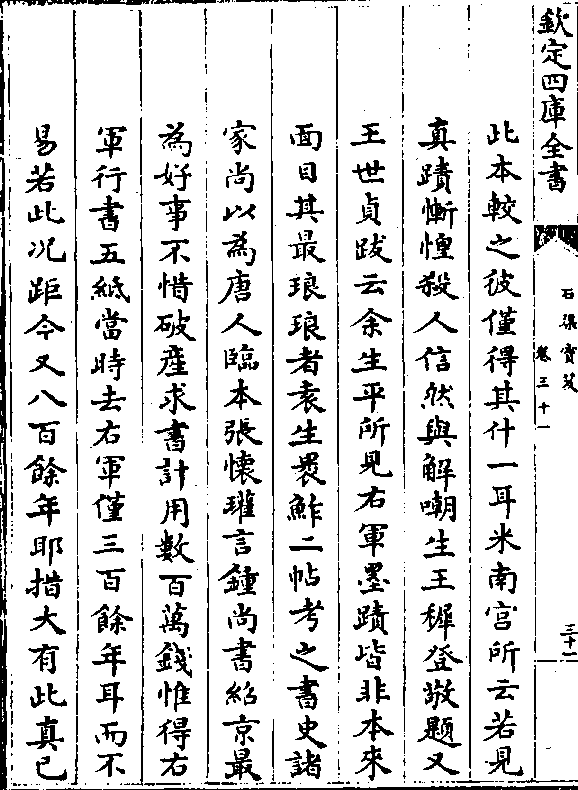 欽定四庫全書
石渠寶笈
卷三十一
三十二
此本較之彼僅得其什一耳米南宫所云若見
真蹟慚惶殺人信然與解嘲生王穉登敬題又
王世貞跋云余生平所見右軍墨蹟皆非本來
面目其最琅琅者袁生褁鮓二帖考之書史諸
家尚以為唐人臨本張懐瓘言鍾尚書紹京最
為好事不惜破産求書計用數百萬錢惟得右
軍行書五紙當時去右軍僅三百餘年耳而不
易若此况距今又八百餘年耶措大有此真已